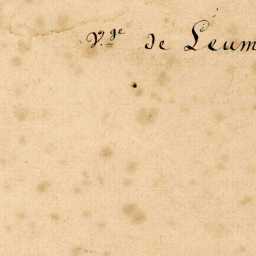 V.ge de Leum